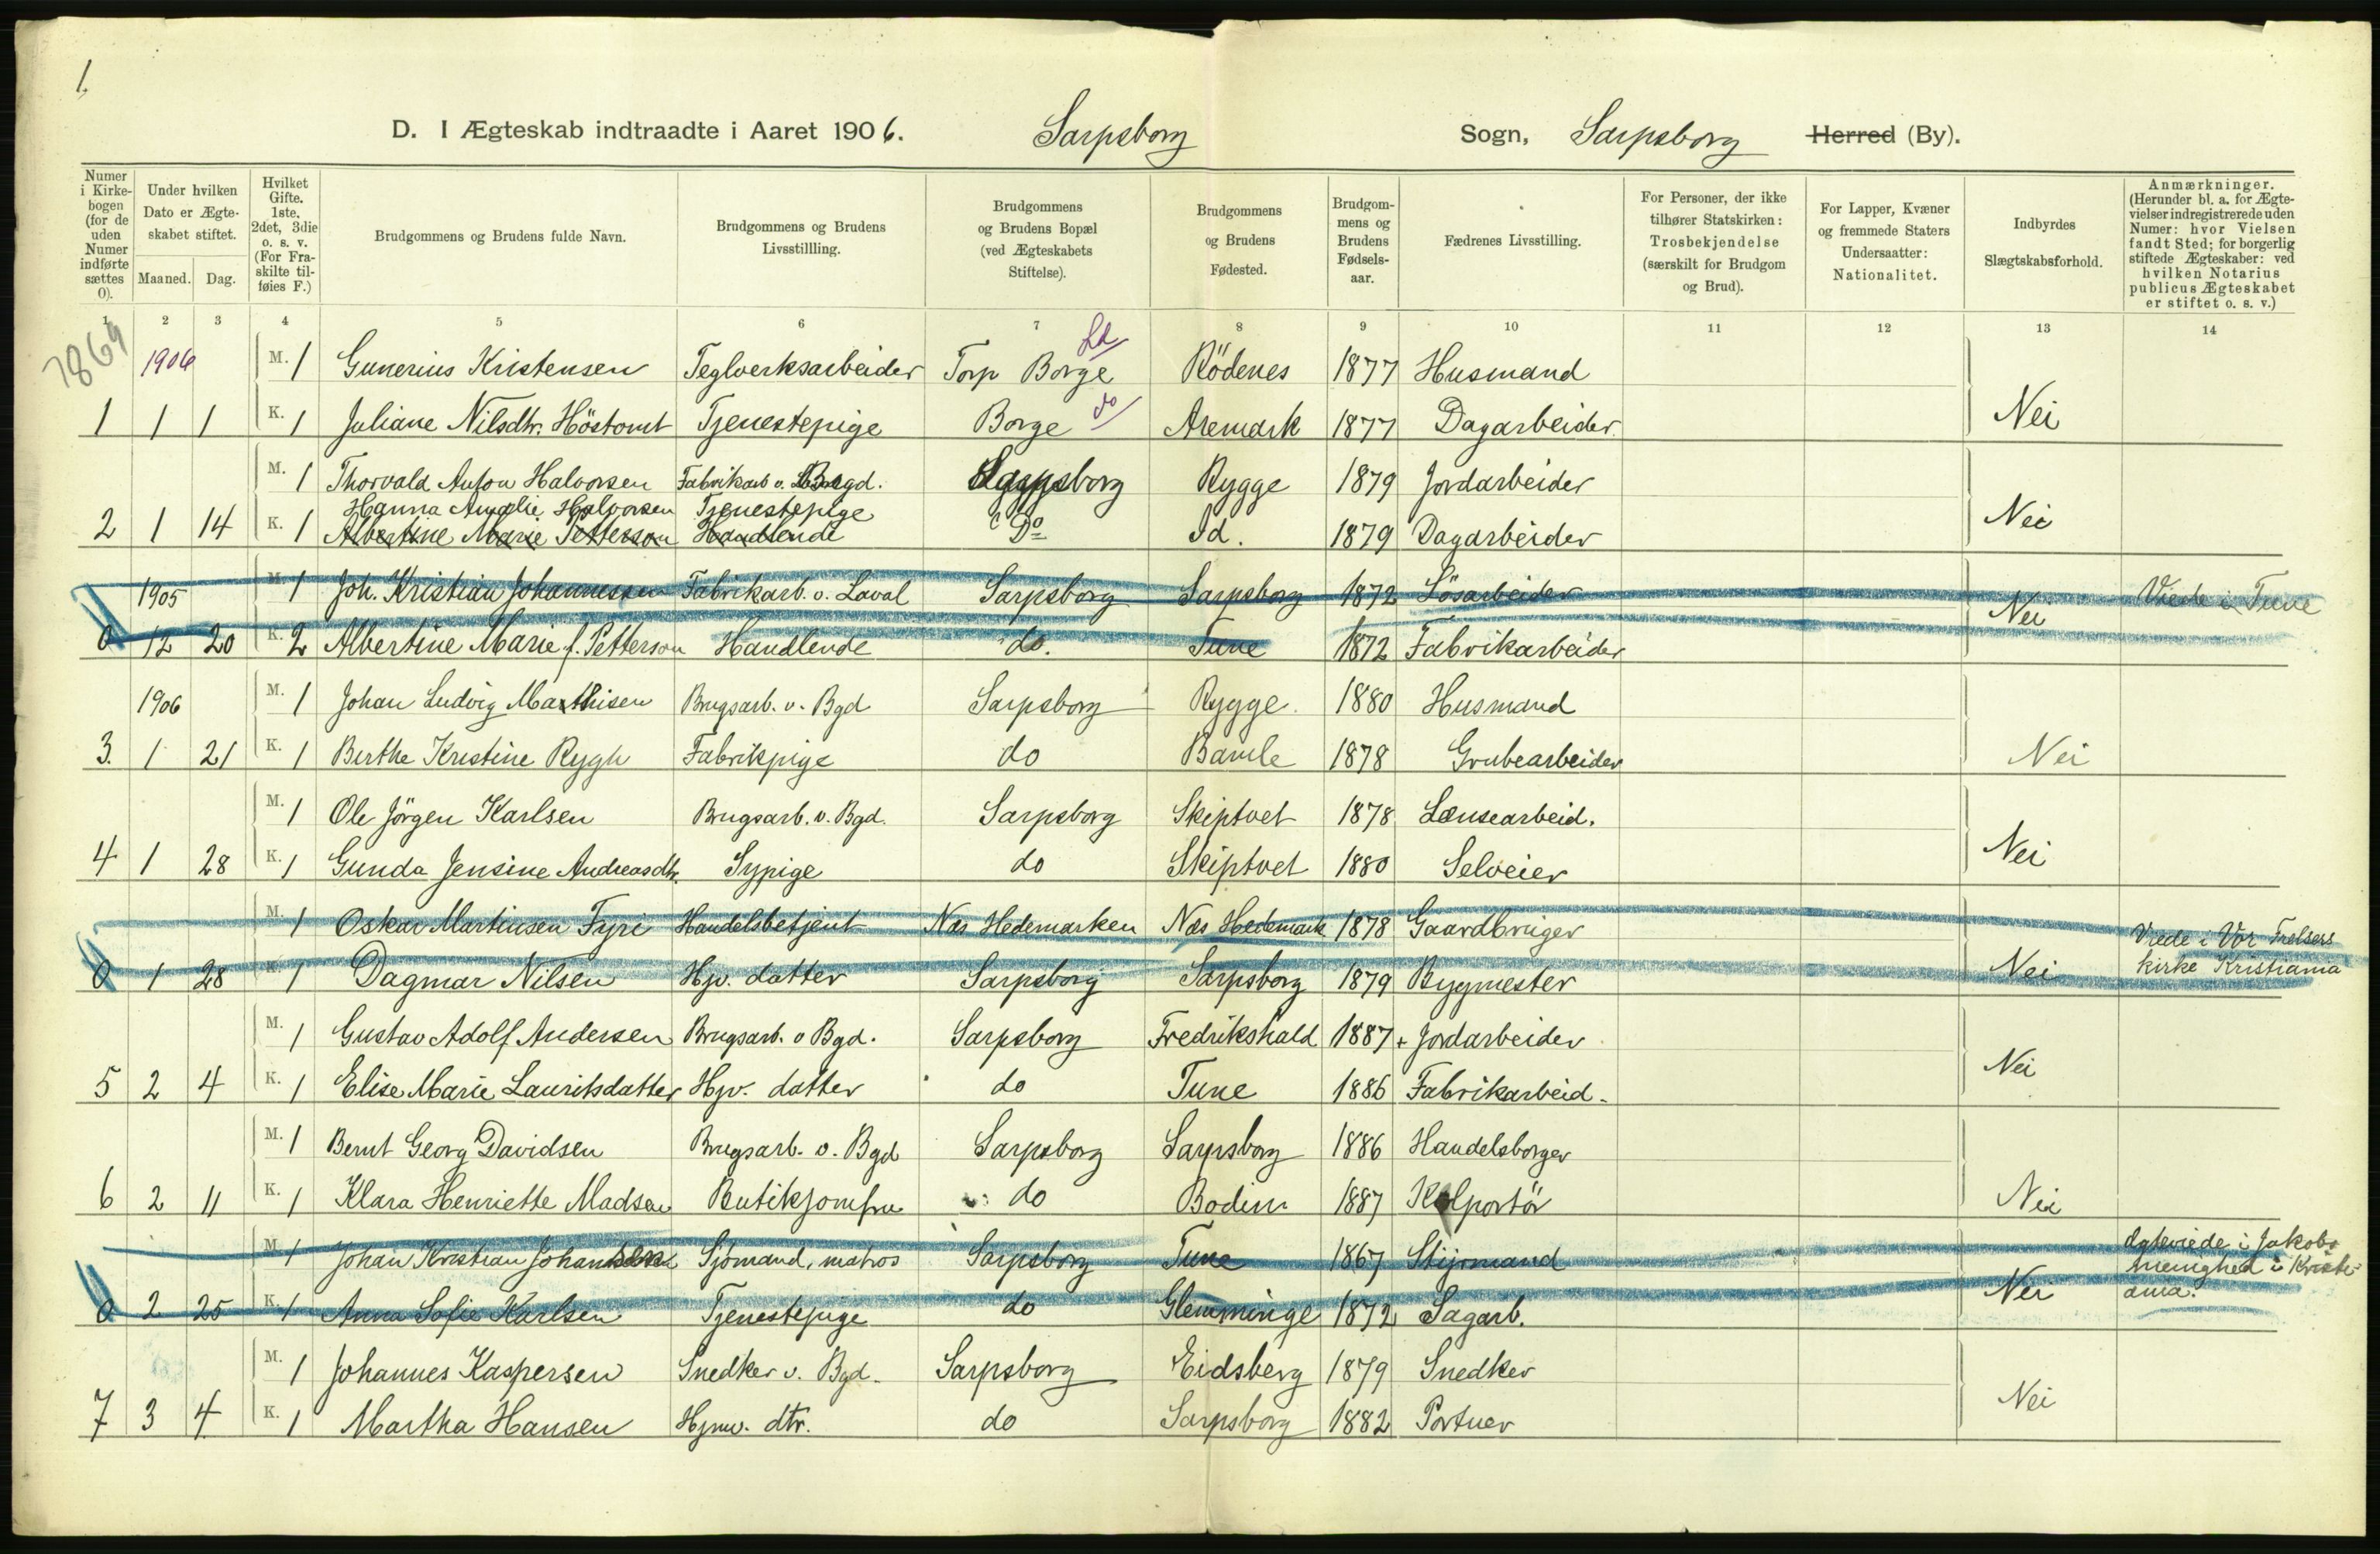 1.
D. I Ægteskab indtraadte i Aaret 1906. Sarpsborg Sogn, Sarpsborg Herred (By).
Numer i Kirkebogen (for de uden Numer indførte sættes 0).
Under hvilken Dato er Ægteskabet stiftet.
Maaned. Dag.
Hvilket Gifte. 1ste, 2det, 3die o. s. v. (For Fraskilte tilføies F.)
Brudgommens og Brudens fulde Navn.
Brudgommens og Brudens Livsstillling.
Brudgommens og Brudens Bopæl (ved Ægteskabets Stiftelse).
Brudgommens og Brudens Fødested.
Brudgommens og Brudens Fødselsaar.
Fædrenes Livsstilling.
For Personer, der ikke tilhører Statskirken: Trosbekjendelse (særskilt for Brudgom og Brud).
For Lapper, Kvæner og fremmede Staters Undersaatter: Nationalitet.
Indbyrdes Slægtskabsforhold.
Anmærkninger. (Herunder bl. a. for Ægtevielser indregistrerede uden Numer: hvor Vielsen fandt Sted; for borgerlig stiftede Ægteskaber: ved hvilken Notarius publicus Ægteskabet er stiftet o. s. v.)
1 2 3 4 5 6 7 8 9 10 11 12 13 14
7869
1906 M. 1 Gunerius Kristensen Teglverksarbeider Torp Borge Ld Rödenes 1877 Husmand
1 1 1 K. 1 Juliane Nilsdtr. Höstomt Tjenestepige Borge do Aremark 1877 Dagarbeider. Nei
M. 1 Thorvald Anton Halvorsen Fabrikarb v. Bogd. Sarpsborg Rygge 1879 Jordarbeider
Hanna Amalie Halvorsen Tjenestepige
2 1 14 K. 1 Albertine Marie Petterson Handlende Do Id. 1879 Dagarbeider Nei
1905 M. 1 Joh. Kristian Johannessen Fabrikarb. v. Laval Sarpsborg Sarpsborg 1872 Lösarbeider Viede i Tune
0 12 20 K. 2 Albertine Marie f. Petterson Handlende do. Tune 1872 Fabrikarbeider Nei
1906 M. 1 Johan Ludvig Mathisen Brugsarb. v. Bgd Sarpsborg Rygge 1880 Husmand
3. 1 21 K. 1 Berthe Kristine Rygh Fabrikpige do Bamle 1878 Grubearbeider Nei
M. 1 Ole Jörgen Karlsen Brugsarb. v. Bgd. Sarpsborg Skiptvet 1878 Lænsearbeid.
4 1 28 K. 1 Gunda Jensine Andreasdtr. Sypige do Skiptvet 1880 Selveier Nei
M. 1 Oskar Martinsen Fyri Handelsbetjent Næs Hedemarken Næs Hedemark 1878 Gaardbruger Viede i Vor Frelsers
0 1 28 K. 1 Dagmar Nilsen Hjv. datter Sarpsborg Sarpsborg 1879 Bygmester Nei kirke Kristiania
M. 1 Gustav Adolf Andersen Brugsarb. v Bgd. Sarpsborg Fredrikshald 1887 + Jordarbeider
5 2 4 K. 1 Elise Marie Lauritsdatter Hjv. datter do Tune 1886 Fabrikarbeid. Nei
M. 1 Bernt Georg Davidsen Brugsarb. v. Bgd Sarpsborg Sarpsborg 1886 Handelsborger
6 2 11 K. 1 Klara Henriette Madsen Butikjomfru do Bodin 1887 Kolportör Nei
M. 1 Johan Kristian Johansen Sjömand, matros Sarpsborg Tune 1867 Stijrmand Ægteviede i Jakobs
menighed i Kristi-
0 2 25 K. 1 Anna Sofie Karlsen Tjenestepige do Glemminge 1872 Sagarb. Nei ania.
M. 1 Johannes Kaspersen Snedker v. Bgd. Sarpsborg Eidsberg 1879 Snedker
7 3 4 K. 1 Martha Hansen Hjmv. dtr. do Sarpsborg 1882 Portner Nei